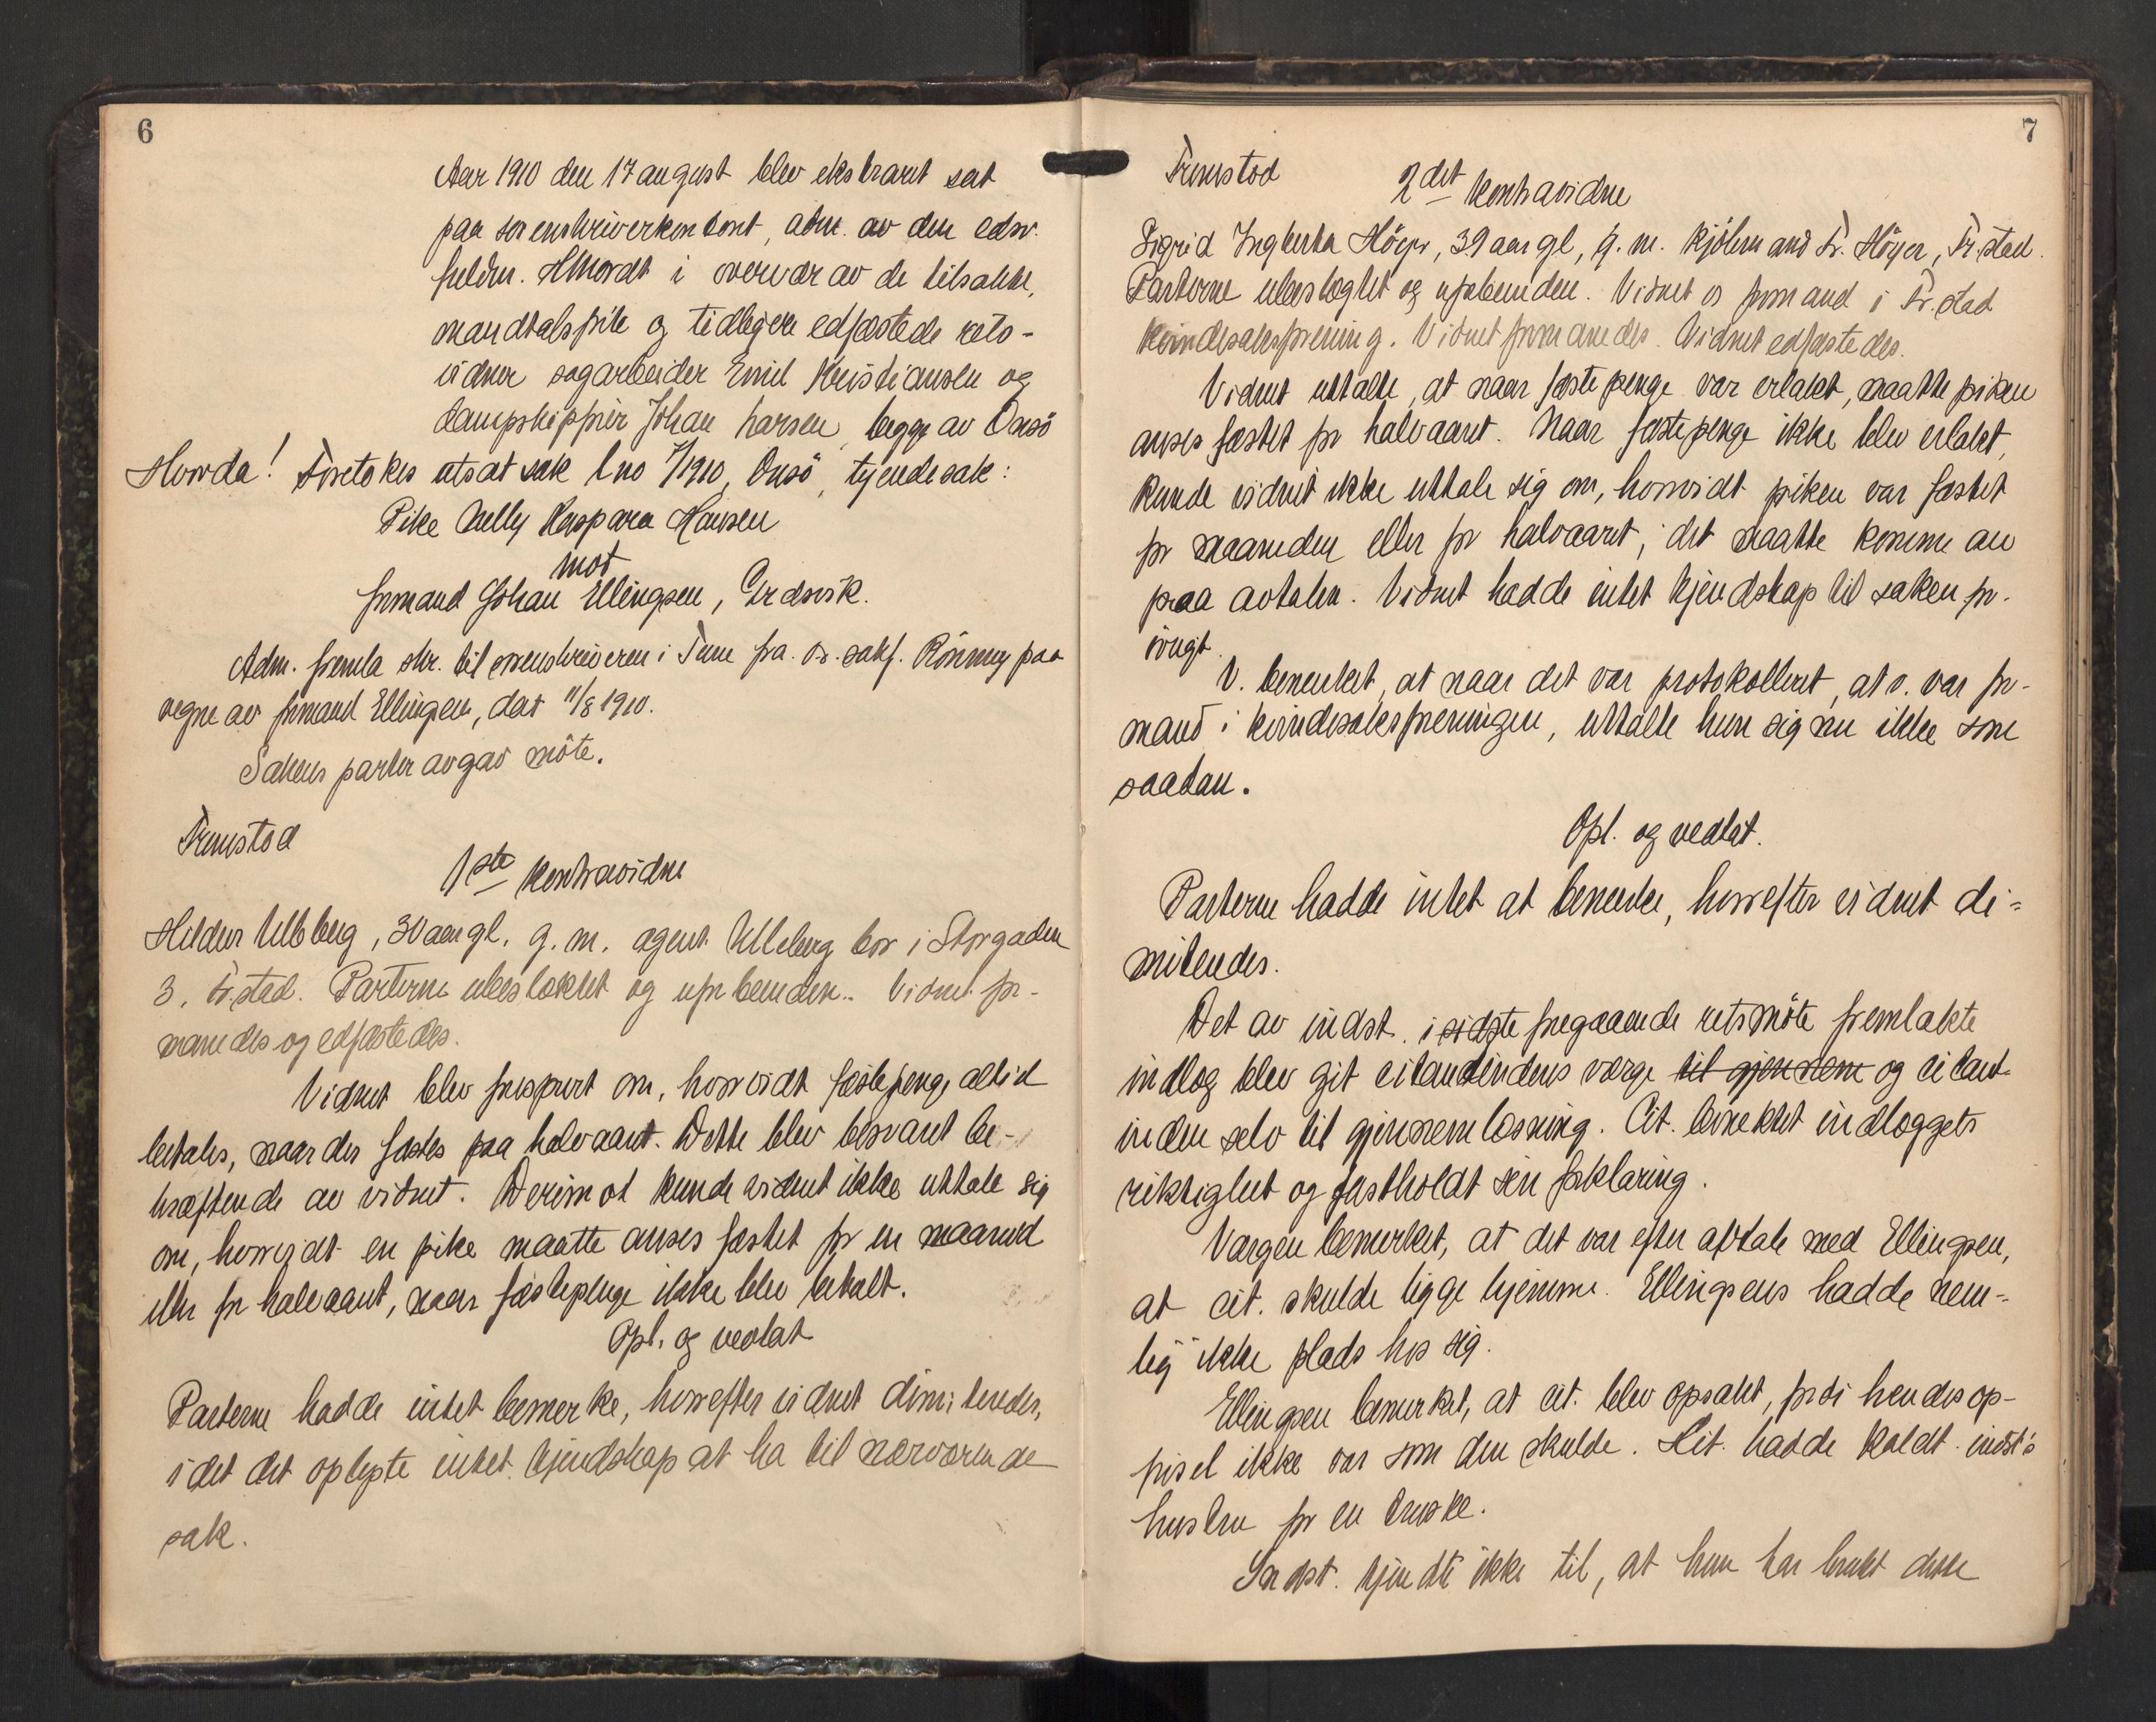 6
Aar 1910 den 17 august blev ekstraret sat
paa sorenskriverkontoret, adm. av den edsv.
fuldm. i overvær av de tilsakte,
mandtalsførte og tidligere edfæstede rets-
vidner sagarbeider Emil Kristiansen og
dampskipsfører Johan Larsen, begge av Onsö
Hovda! Foretokes utsat sak l no 7/1910, Onsö, tjendesak:
Pike Nelly Kaspara Hansen
mot
formand Johan Ellingsen,
Adm. fremla skr. til sorenskriveren i Tune fra o.r.sakf. Rönneg paa
vegne av formand Ellingsen, dat 11/8 1910.
Sakens parter avgav möte.
Fremstod
1ste kontravidne
Hildur Ulleberg, 30 aar gl. g.m. agent Ulleberg bor i Storgaden
3, Fr.stad. Parterne ubeslektet og uforbunden. Vidnet for-
manedes og edfæstedes.
Vidnet blev forespurt om, hvorvidt fæstepenge altid
betales, naar der fæstes paa halvaaret. Dette blev besvaret be-
kræftende av vidnet. Derimot kunde vidnet ikke uttale sig
om, hvorvidt en pike maatte anses fæstet for en maaned
eller for halvaaret, naar fæstepenge ikke blev betalt.
Opl. og vedtat
Parterne hadde intet bemerke, hvorefter vidnet dimiteredes,
idet det oplyste intet kjendskap at ha til nærværende
sak.
7
Fremstod
2det kontravidne
Sigrid Ingberta Höyer, 39 aar gl, g.m. kjöbmand Fr. Höyer, Fr.stad.
Parterne ubeslegtet og uforbunden. Vidnet er formand i Fr.stad
kvindesaksforening. Vidnet formanedes. Vidnet edfæstedes.
Vidnet uttalte, at naar fæstepenge var erlakt, maatte piken
anses fæstet for halvaaret. Naar fæstepenge ikke blev erlakt,
kunde vidnet ikke uttale sig om, hvorvidt piken var fæstet
for maaneden eller for halvaaret, det maatte komme an
paa avtalen. Vidnet hadde intet kjendskap til saken for-
övrigt.
V. bemerket, at naar det var protokolleret, at v. var for-
mand i kvindesaksforeningen, uttalte hun sig nu ikke som
saadan.
Opl. og vedtat.
Parterne hadde intet at bemerke, hvorefter vidnet di-
miteredes.
Det av indst. i sidste foregaaende retsmöte fremlakte
indlæg blev git citantindens verge til gjennem og citant-
inden selv til gjennemlæsning. Cit. benektet indlæggets
riktighet og fastholdt sin forklaring.
Vergen bemerket, at det var efter avtale med Ellingsen,
at cit. skulde ligge hjemme. Ellingsens hadde nem-
lig ikke plads hos sig.
Ellingsen bemerket, at cit. blev opsakt, fordi hendes op-
försel ikke var som den skulde. Cit. hadde kaldt indst's
hustru for en truske.
Indst. kjendte ikke til, at hun har brukt dette